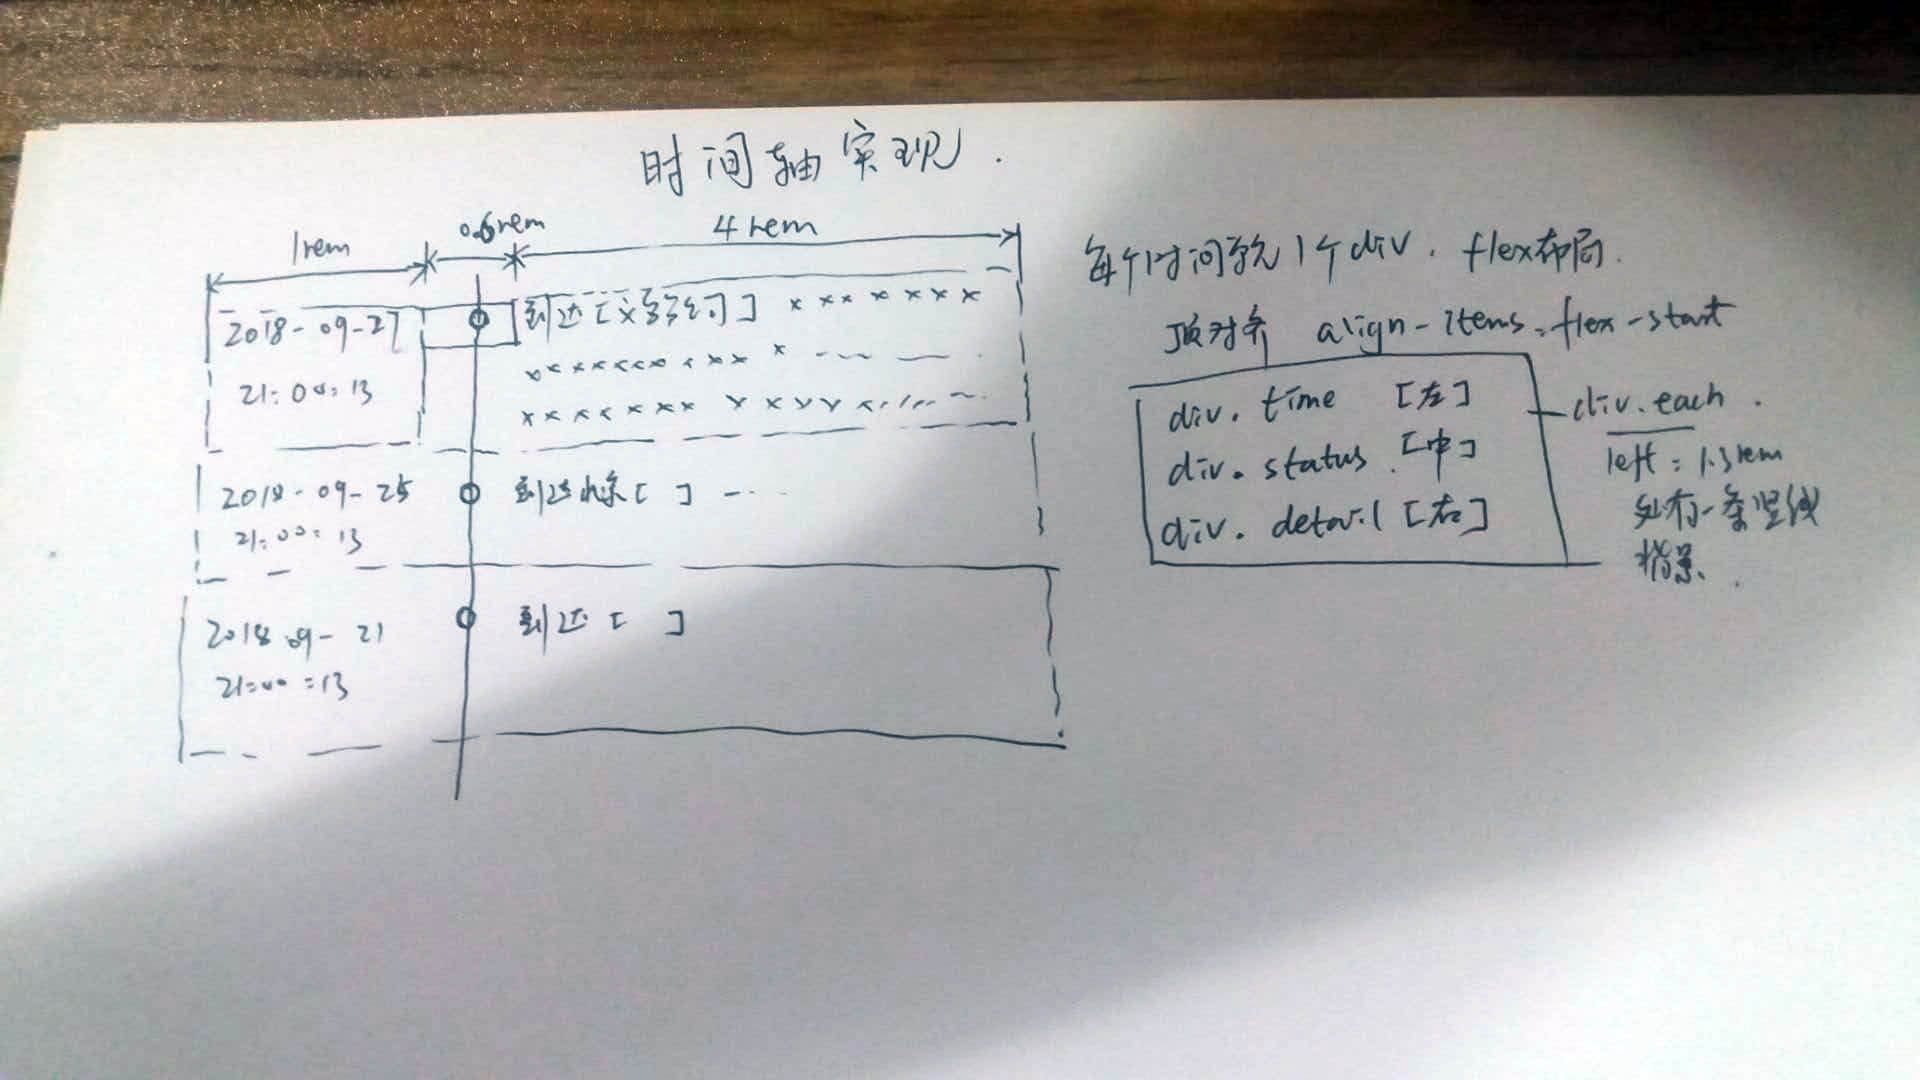 时间轴实现.
1rem 0.6rem 4rem
2018-09-27 到达[义乌 ] × × × × × × ×
21:00:13
2018-09-25 到达北京[ ] -...
21:00:13
2018 09-21 到达[ ]
21:00:13
每个时间 1个div. flex布局.
顶对齐 align-items:flex-start
div. time [左]
div. status. [中]
div. detail [右]
div.each.
left: 1.3rem
处有一条竖线
背景.